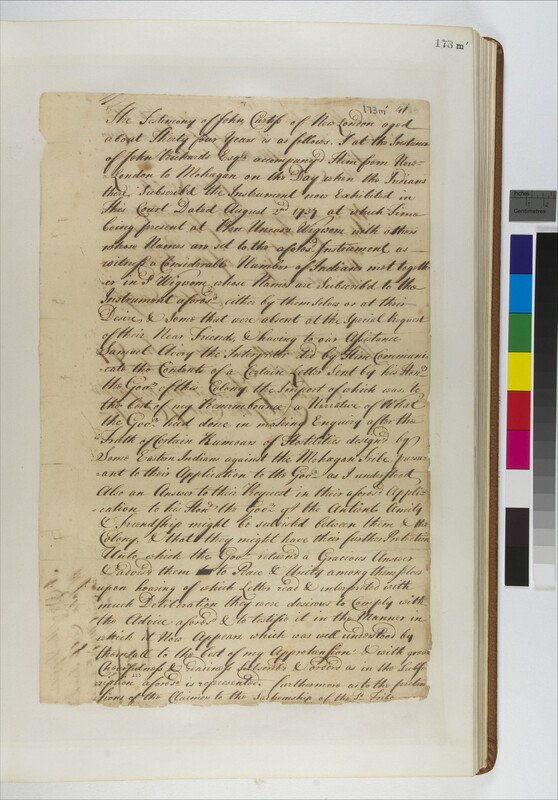 173 m'
173 m' 41
The Testimony of John Curtiss of New London aged
about Thirty four Years is as follows. I at the Instance
of John Richards Esqr. acompany'd Him from New-
London to Mohagan on the Day when the Indians
there Subscrib'd the Instrument now Exhibited in
This Court Dated August 2d 1737 at which Time
being present at Ben Uncas's Wigwom with others
whose Names are set to the aforesd. Instrument as
witness a Considerable Number of Indians met togeth
er in sd. Wigwom whose Names are Subscribd to the
Instrument aforesd. either by themselves or at their
Desire & Some that were absent at the Special Request
of their Near Friends, & having to our Assistance
Samuel Avery the Interpreter did by Him Communi
cate the Contents of a Certain Letter Sent by his Honr.
the Govr. of this Colony the Import of which was to
the best of my Remembrance a Narrative of What
the Govr. had done in making Enquiry after the
Truth of Certain Rumours of Hostilitis design'd by
Some Eastern Indians against the Mohagan Tribe pursu
ant to their Application to the Govr. as I understood
Also an Answer to their Request in their aforesd. Appli-
cation to his Honr. the Govr. yt the Antient Amity
& friendship might be between them & this
Colony, & that they might have their further Protection
Unto which the Govr. return'd a Gracious Answer
& advis'd them to Peace & Unity among themselves
upon hearing of which Letter read & interpreted with
much Deliberation they were desirous to Comply with
the Advice aforesd. & to testifie it in the Manner in
which it Now Appears which was well understood by
them all to the best of my Apprehension & with great
Chearfulness & readiness subscribe & as in the Subs-
cription aforesd. is represented. Furthermore as to the preten
tions of the Claimer to the Sachemship of the sd. Tribe